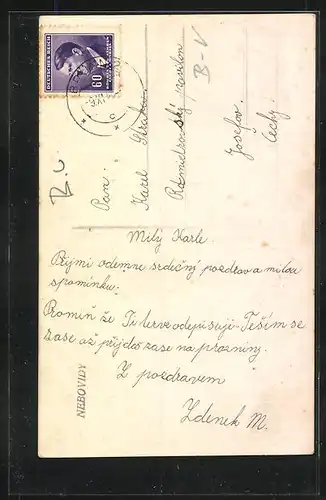 DEUTSCHES REICH
60
B-V
R.U
Pan
Karel
Josefov
Čechy.
Milý Karle
Přijmi odemne srdečný pozdrav a milou
spomínku.
Promiň že Ti terve odepisuji. Těším se
zase až přijdeš zase na prázniny.
Z pozdravem
Zdenek M.
NEBOVIDY